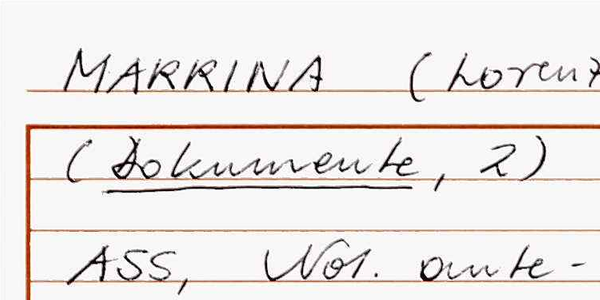 MARRINA (Lorenz
(Dokumente, 2)
ASS, Not. ante-